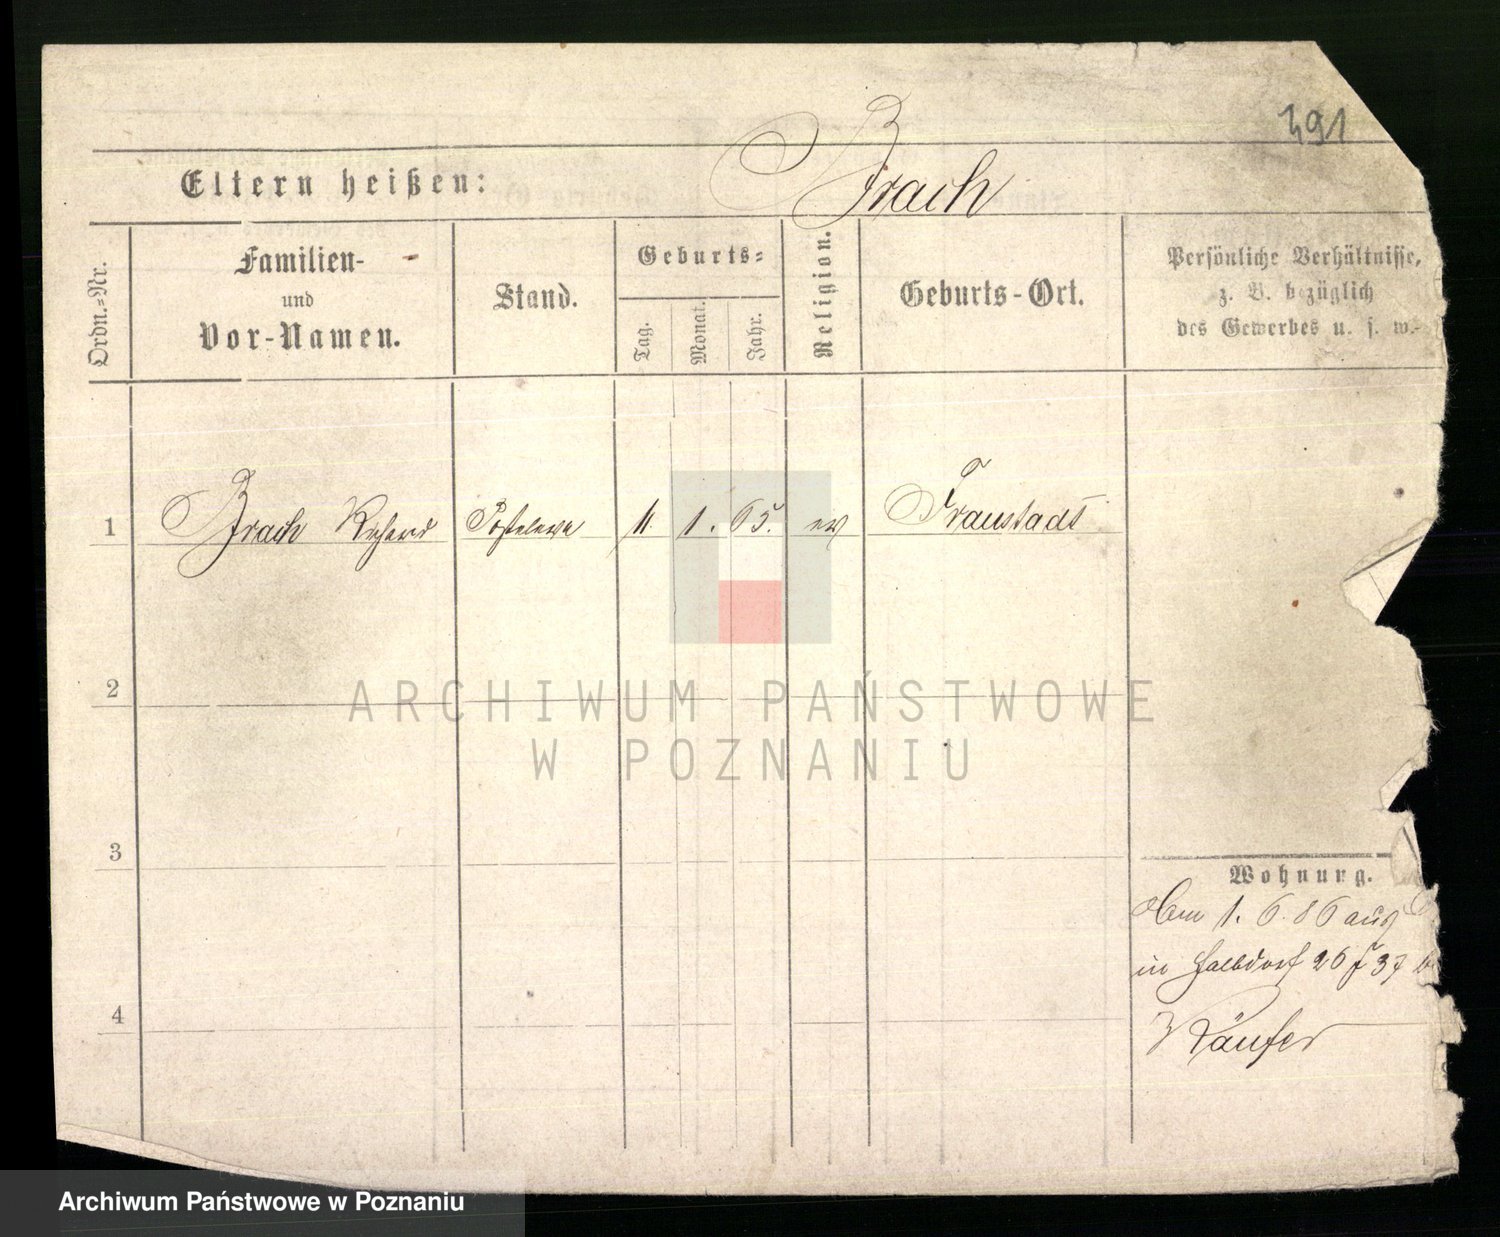 391
Eltern heißen: Brach
Ordn.-Nr.
Familien-
und
Vor-Namen.
Stand.
Geburts-
Tag.
Monat.
Jahr.
Religion.
Geburts-Ort.
Persönliche Verhältnisse,
z. B. bezüglich
des Gewerbes u. s. w.
1 Brach Richard Posteleve 11. 1. 65. ev Fraustadt
2
ARCHIWUM PAŃSTWOWE
W POZNANIU
3
Wohnung.
1. 6. 86 aus
in Halbdorf 26 37
4
Käufer
Archiwum Państwowe w Poznaniu